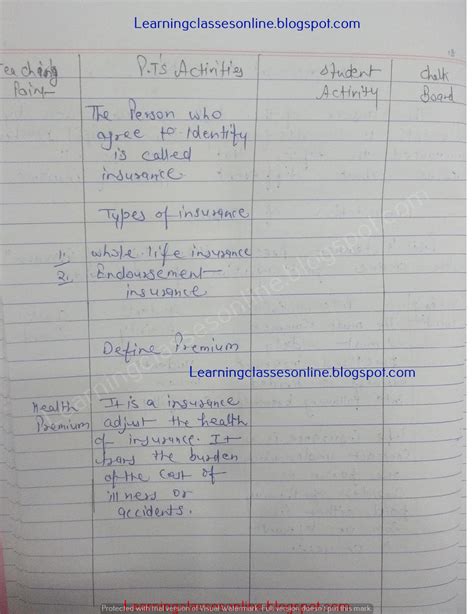 Learningclassesonline.blogspot.com
13
Teaching Point
P.T's Activities
Student Activity
Chalk Board
The Person who
agree to Identify
is called
insurance
Types of insurance
1. whole life insurance
2. Endoursement
insurance
Define Premium
Learningclassesonline.blogspot.com
Health Premium
It is a insurance
adjust the health
of insurance. It
the burden
of the cost of
illness or
accidents.
Learningclassesonline.blogspot.com
Protected with trial version of Visual Watermark. Full version doesn't put this mark.